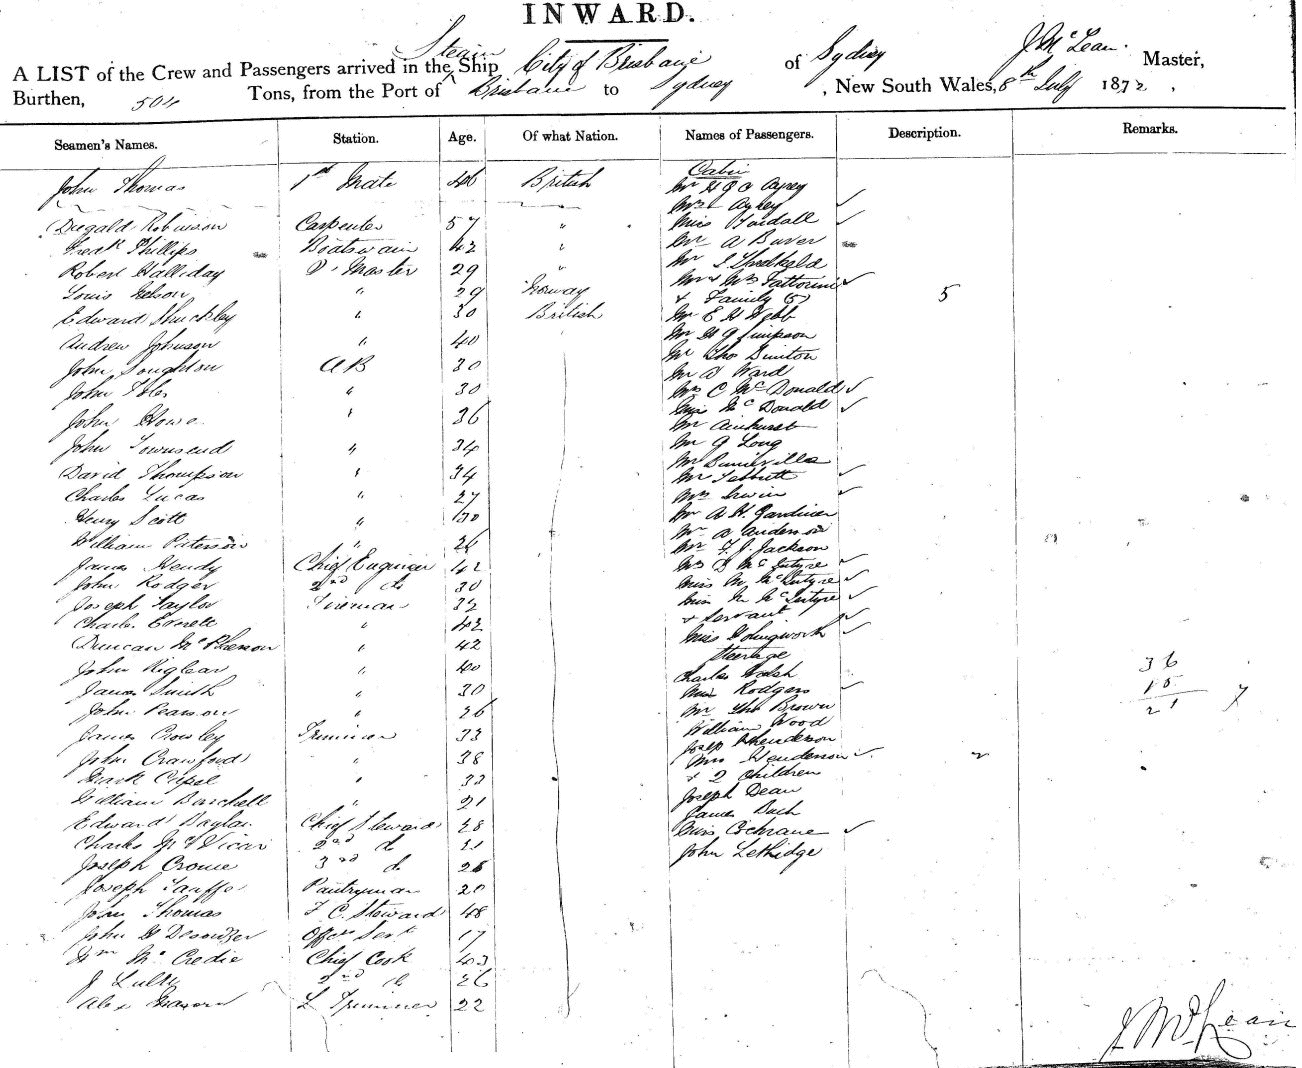 INWARD.
A LIST of the Crew and Passengers arrived in the Steam Ship City of Brisbane of Sydney J McLean. Master,
Burthen, 504 Tons, from the Port of Brisbane to Sydney, New South Wales, 8th July 1872,
Seamen's Names. Station. Age. Of what Nation. Names of Passengers. Description. Remarks.
Cabin
John Thomas 1st Mate 46 British Mr H J C Ayrey
Mrs Ayrey
Dugald Robinson Carpenter 57 " Miss Tindall
Fredk Phillips Boatswain 42 " Mr A Buver
Robert Halliday Qr Master 29 " Mr J Threlkeld
Louis Nelson " 29 Norway Mr & Mrs Fattorini
& Family (5) 5
Edward Shuckley " 30 British Mr E H Webb
Andrew Johnson " 40 Mr H G Simpson
Mr Thos Sinton
John Boughton AB 30 Mr D Ward
John " 30 Mrs C McDonald
Miss McDonald
John Howe " 36 Mr Amhurst
John Townsend " 34 Mr G Long
Mr
David Thompson " 34 Mr Tebbutt
Charles Lucas " 27 Mrs Irwin
Henry Scott " 30 Mr A H Gardiner
Mr D Anderson
William Peterson " 26 Mr F. J. Jackson
James Hendy Chief Engineer 42 Mrs D McIntyre
John Rodger 2nd do 30 Miss M McIntyre
Joseph Taylor Fireman 32 Miss N McIntyre
Charles Everett " 42 & Servant
Duncan McPherson " 42 Miss Holingworth
Steerage
John Kiglear " 40 Charles Walsh 36
James Smith " 30 Miss Rodgers 15
John Pearson " 26 Mr Thos Brown 21 7
William Wood
James Crosley Trimmer 33 Joseph Henderson
John Crawford " 38 Mrs Henderson 2
Mark Cripel " 33 & 2 Children
William Burchell " 21 Joseph Dean
Edward Baylan Chief Steward 28 James Bach
Charles McVicar 2nd do 21 Miss Cochrane
Joseph Crowe 3rd do 25 John Lethidge
Joseph Pantryman 20
John Thomas F C Steward 48
John W Desouzer Offrs Servt 17
Wm McCredie Chief Cook 43
J 2nd do 26
Alex L Trimmer 22
J McLean